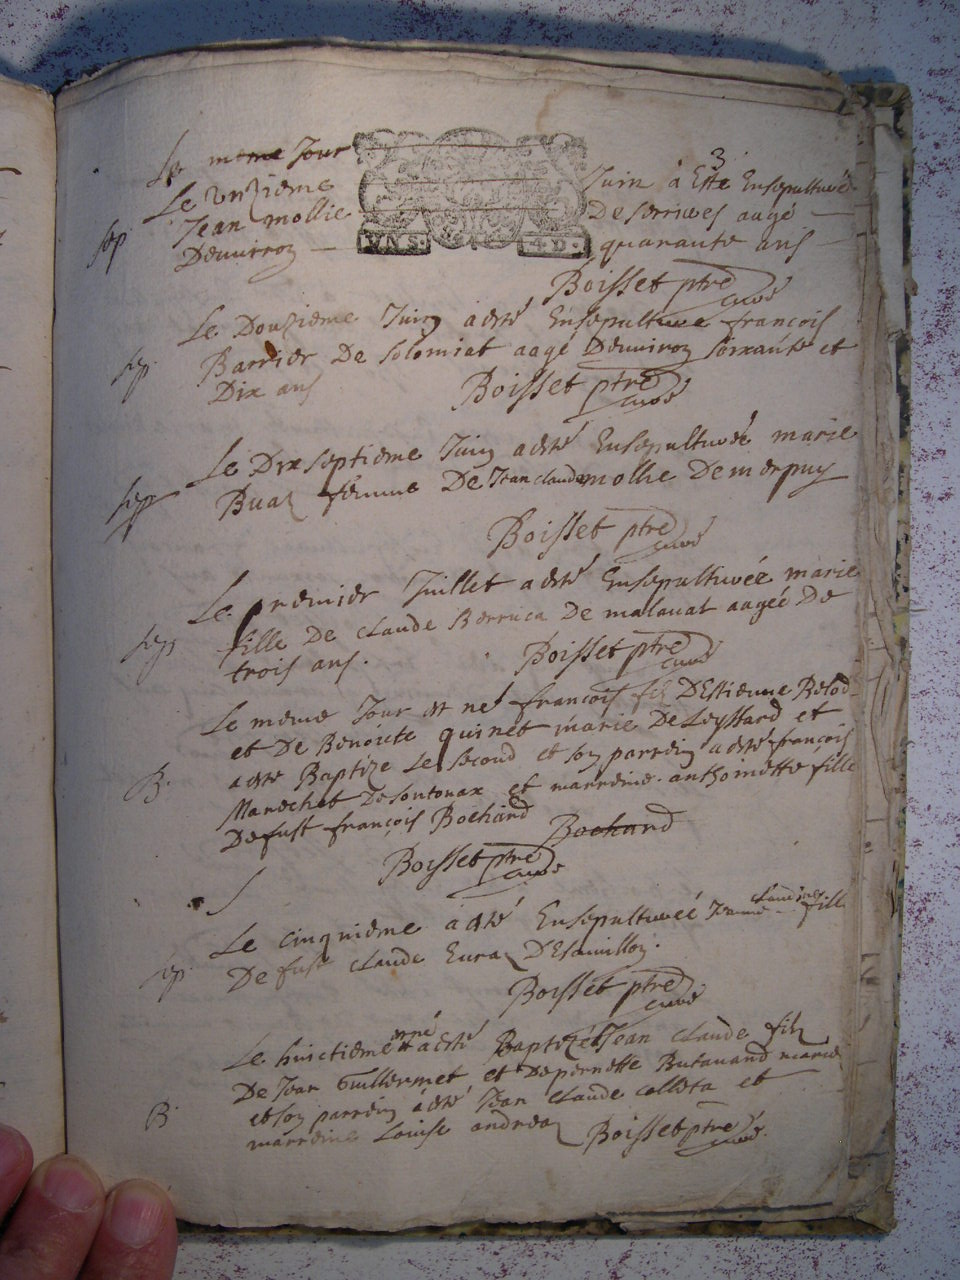 3
Le meme Jour
Le unzieme Juin à Esté Ensepulturé
sep. Jean mollie De serrives aagé
Denviron quarante ans
VNS. 4D.
Boisset ptre curé
Le Douzieme Juin a esté Ensepulturé françois
sep. Barrier De solomiat aagé Denviron soixante et
Dix ans Boisset ptre curé
Le Dixseptieme Juin a esté Ensepulturée marie
sep. Buaz femme De Jean claude mollie De merpuy
Boisset ptre curé
Le premier Juillet a esté Ensepulturée marie
sep. fille De claude Berruca De malaval aagée De
trois ans. Boisset ptre curé
Le meme Jour est né françois filz D'Estienne Belod
et De Benoicte quinet marie De Leyssard et
B. a esté Baptize Le second et son parrein a esté françois
Marechal De sontonax et marreine anthoinette fille
De fust françois Bochard Bochard
Boisset ptre curé
Le cinquieme a esté Ensepulturée claudine fille
sep. De fust claude Euraz
Boisset ptre curé
Le huictieme est né et a esté Baptizé Jean claude filz
De Jean Guillermet et De pernette Butavand mariés
B. et son parrein a esté Jean claude colleta et
marreine Louise andreaz Boisset ptre curé